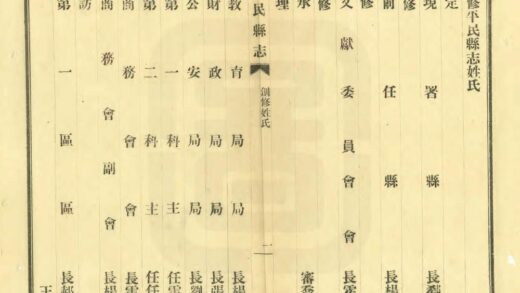 修平民縣志姓氏
定
現署縣長
修
前任縣長楊
修
文獻委員會會長
修
承審
理
民縣志
創修姓氏
二
教育局局長楊
財政局局長張
公安局局長劉
第一科主任雷
第二科主任任
商務會會長雷
商務會副會長楊
訪
第一區區長
王